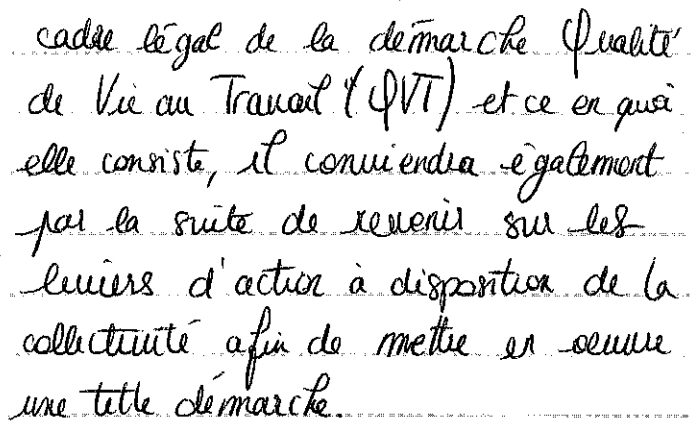 cadre légal de la démarche Qualité
de Vie au Travail (QVT) et ce en quoi
elle consiste, il conviendra également
par la suite de revenir sur les
leviers d'action à disposition de la
collectivité afin de mettre en oeuvre
une telle démarche.